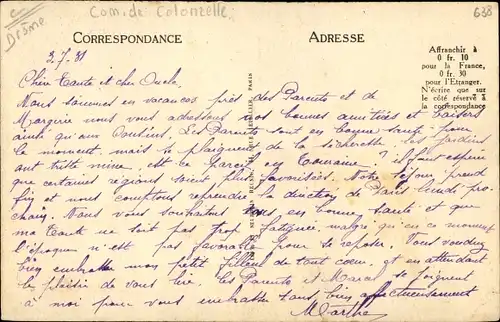 Com. de Colonzelle
638
Drôme
CORRESPONDANCE
ADRESSE
Affranchir à
0 fr. 10
pour la France,
0 fr. 30
pour l'Etranger.
N'écrire que sur
le côté réservé à
la correspondance
3.7.31
Chère Tante et cher Oncle,
Nous sommes en vacances près des Parents et de
Margirie nous vous adressons nos bonnes amitiés et baisers
ainsi qu'aux Cousins. Les Parents sont en bonne santé pour
le moment, mais se plaignent de la sécheresse, les jardins
ont triste mine, est-ce pareil en Touraine ? il faut espérer
que certaines régions soient plus favorisées. Notre séjour prend
fin et nous comptons reprendre la direction de Paris lundi pro
chain. Nous vous souhaitons en bonne santé et que
ma Tante ne soit pas trop fatiguée, malgré qu'en ce moment
l'époque n'est pas favorable pour se reposer. Vous voudrez
bien embrasser mon petit filleul de tout cœur, et en attendant
le plaisir de vous lire, les Parents et Marcel se joignent
à moi pour vous embrasser tous bien affectueusement
Marthe